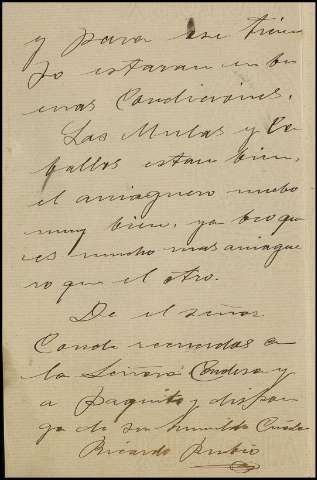 y para ese tiem
po estaran en bu
enas Condiciones.
Las Mulas y Ca
ballos estan bien,
el amaguero mucho
muy bien, ya beo que
es mucho mas amague
ro que el otro.
De el señor
Conde recuerdos a
la Señora Condesa y
a Paquito y dispon
ga de su humilde Criado
Ricardo Rubio